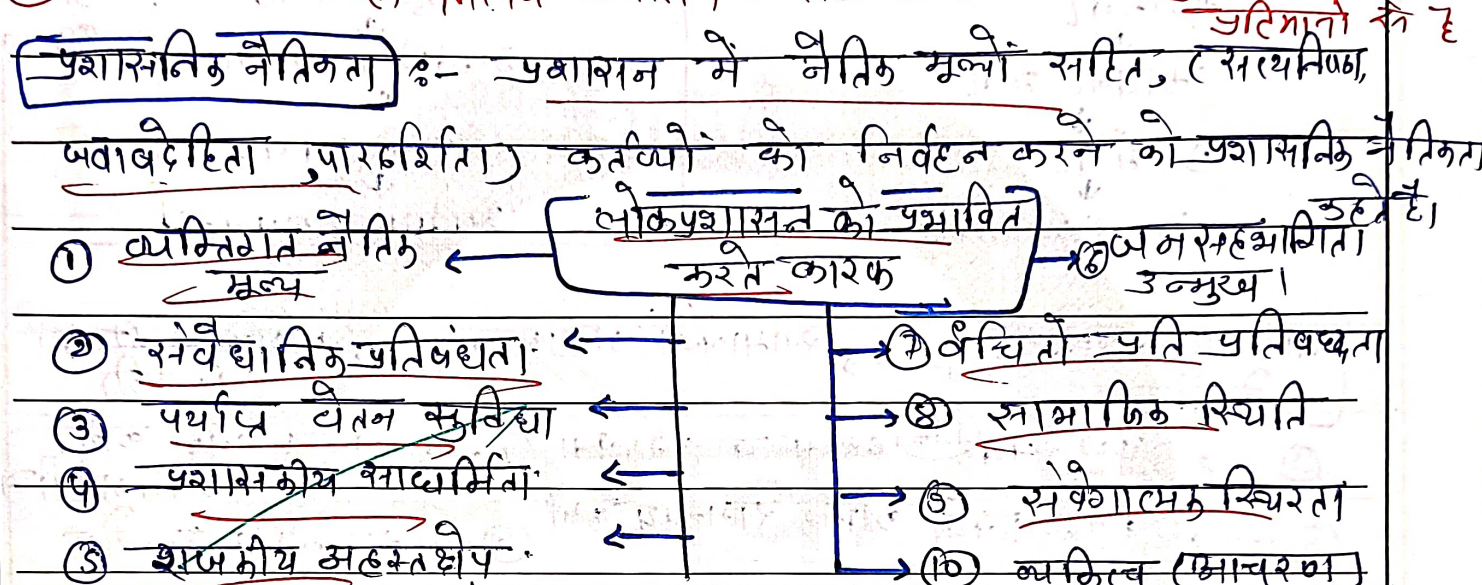 प्रतिमानो के है
प्रशासनिक नैतिकता :- प्रशासन में नैतिक मूल्यों सहित, (सत्यनिष्ठा,
जवाबदेहिता, पारदर्शिता) कर्तव्यों को निर्वहन करने को प्रशासनिक नैतिकता
कहते है।
लोकप्रशासन को प्रभावित
करते कारक
① व्यक्तिगत नैतिक
मूल्य
② संवैधानिक प्रतिबंधता
③ पर्याप्त वेतन सुविधा
④ प्रशासकीय साधर्मिता
⑤ राजकीय अहस्तक्षेप
⑥ जनसहभागिता
उन्मुख।
⑦ वंचितो प्रति प्रतिबध्धता
⑧ सामाजिक स्थिति
⑨ संवेगात्मक स्थिरता
⑩ व्यक्तित्व (आचरण)